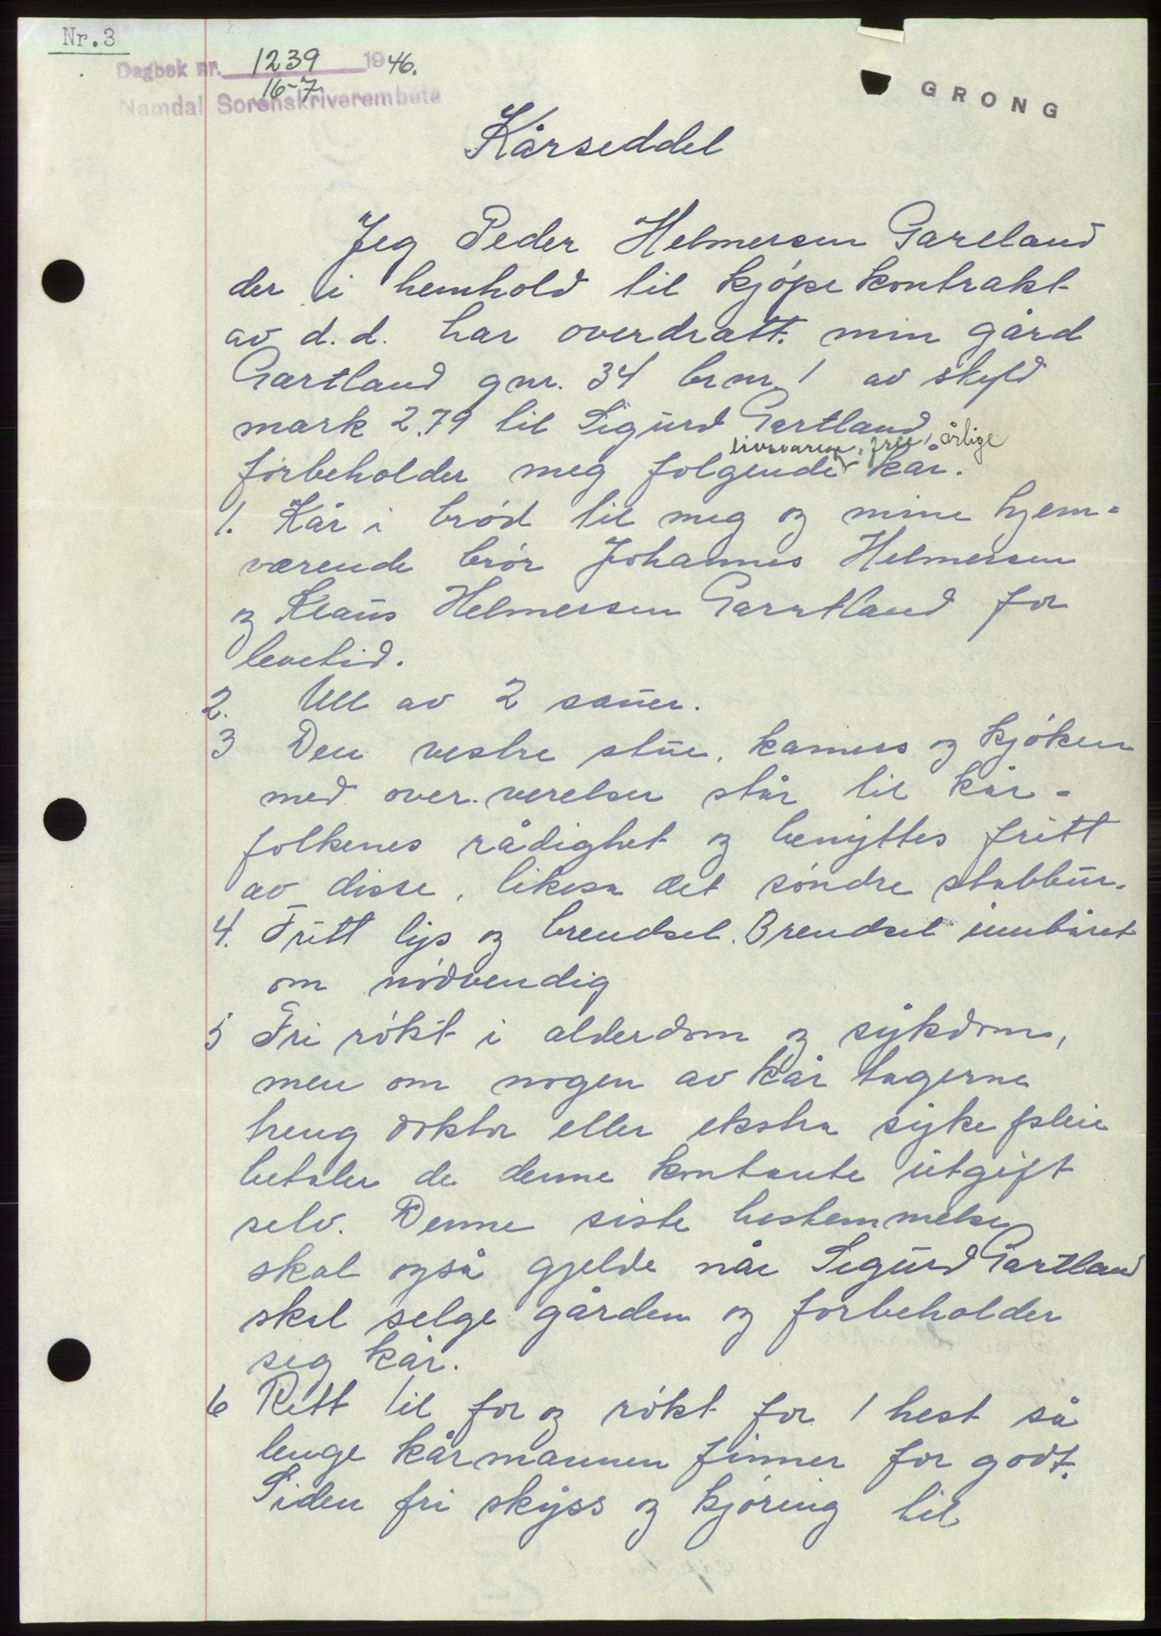 Nr. 3
Dagbok nr. 1239 1946.
16-7
Namdal Sorenskriverembete
GRONG
Kårseddel
Jeg Peder Helmersen Gartland
der i henhold til kjøpekontrakt
av d.d. har overdratt min gård
Gartland gnr. 34 brnr. 1 av skyld
mark 2.79 til Sigurd Gartland
livsvarig, frie, årlige
forbeholder meg følgende kår.
1. Kår i brød til meg og mine hjem-
værende brør Johannes Helmersen
og Klaus Helmersen Gartland for
levetid.
2. Ull av 2 sauer.
3 Den vestre stue, kamers og kjøken
med over.verelser står til kår-
folkenes rådighet og benyttes fritt
av disse, likesa det søndre stabbur.
4. Fritt lys og brendsel. Brendsel innbåret
om nødvendig
5 Fri røkt i alderdom og sykdom,
men om nogen av kår tagerne
treng doktor eller ekstra syke pleie
betaler de denne kontante utgift
selv. Denne siste bestemmelse
skal også gjelde når Sigurd Gartland
skal selge gården og forbeholder
seg kår.
6 Rett til for og røkt for 1 hest så
lenge kårmannen finner for godt.
Siden fri skyss og kjøring til